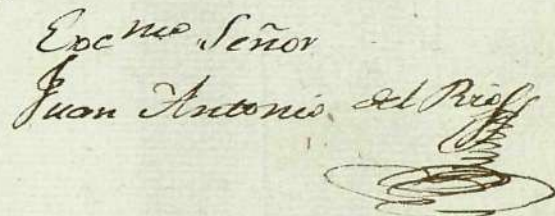 Exc.mo Señor
Juan Antonio del Rio